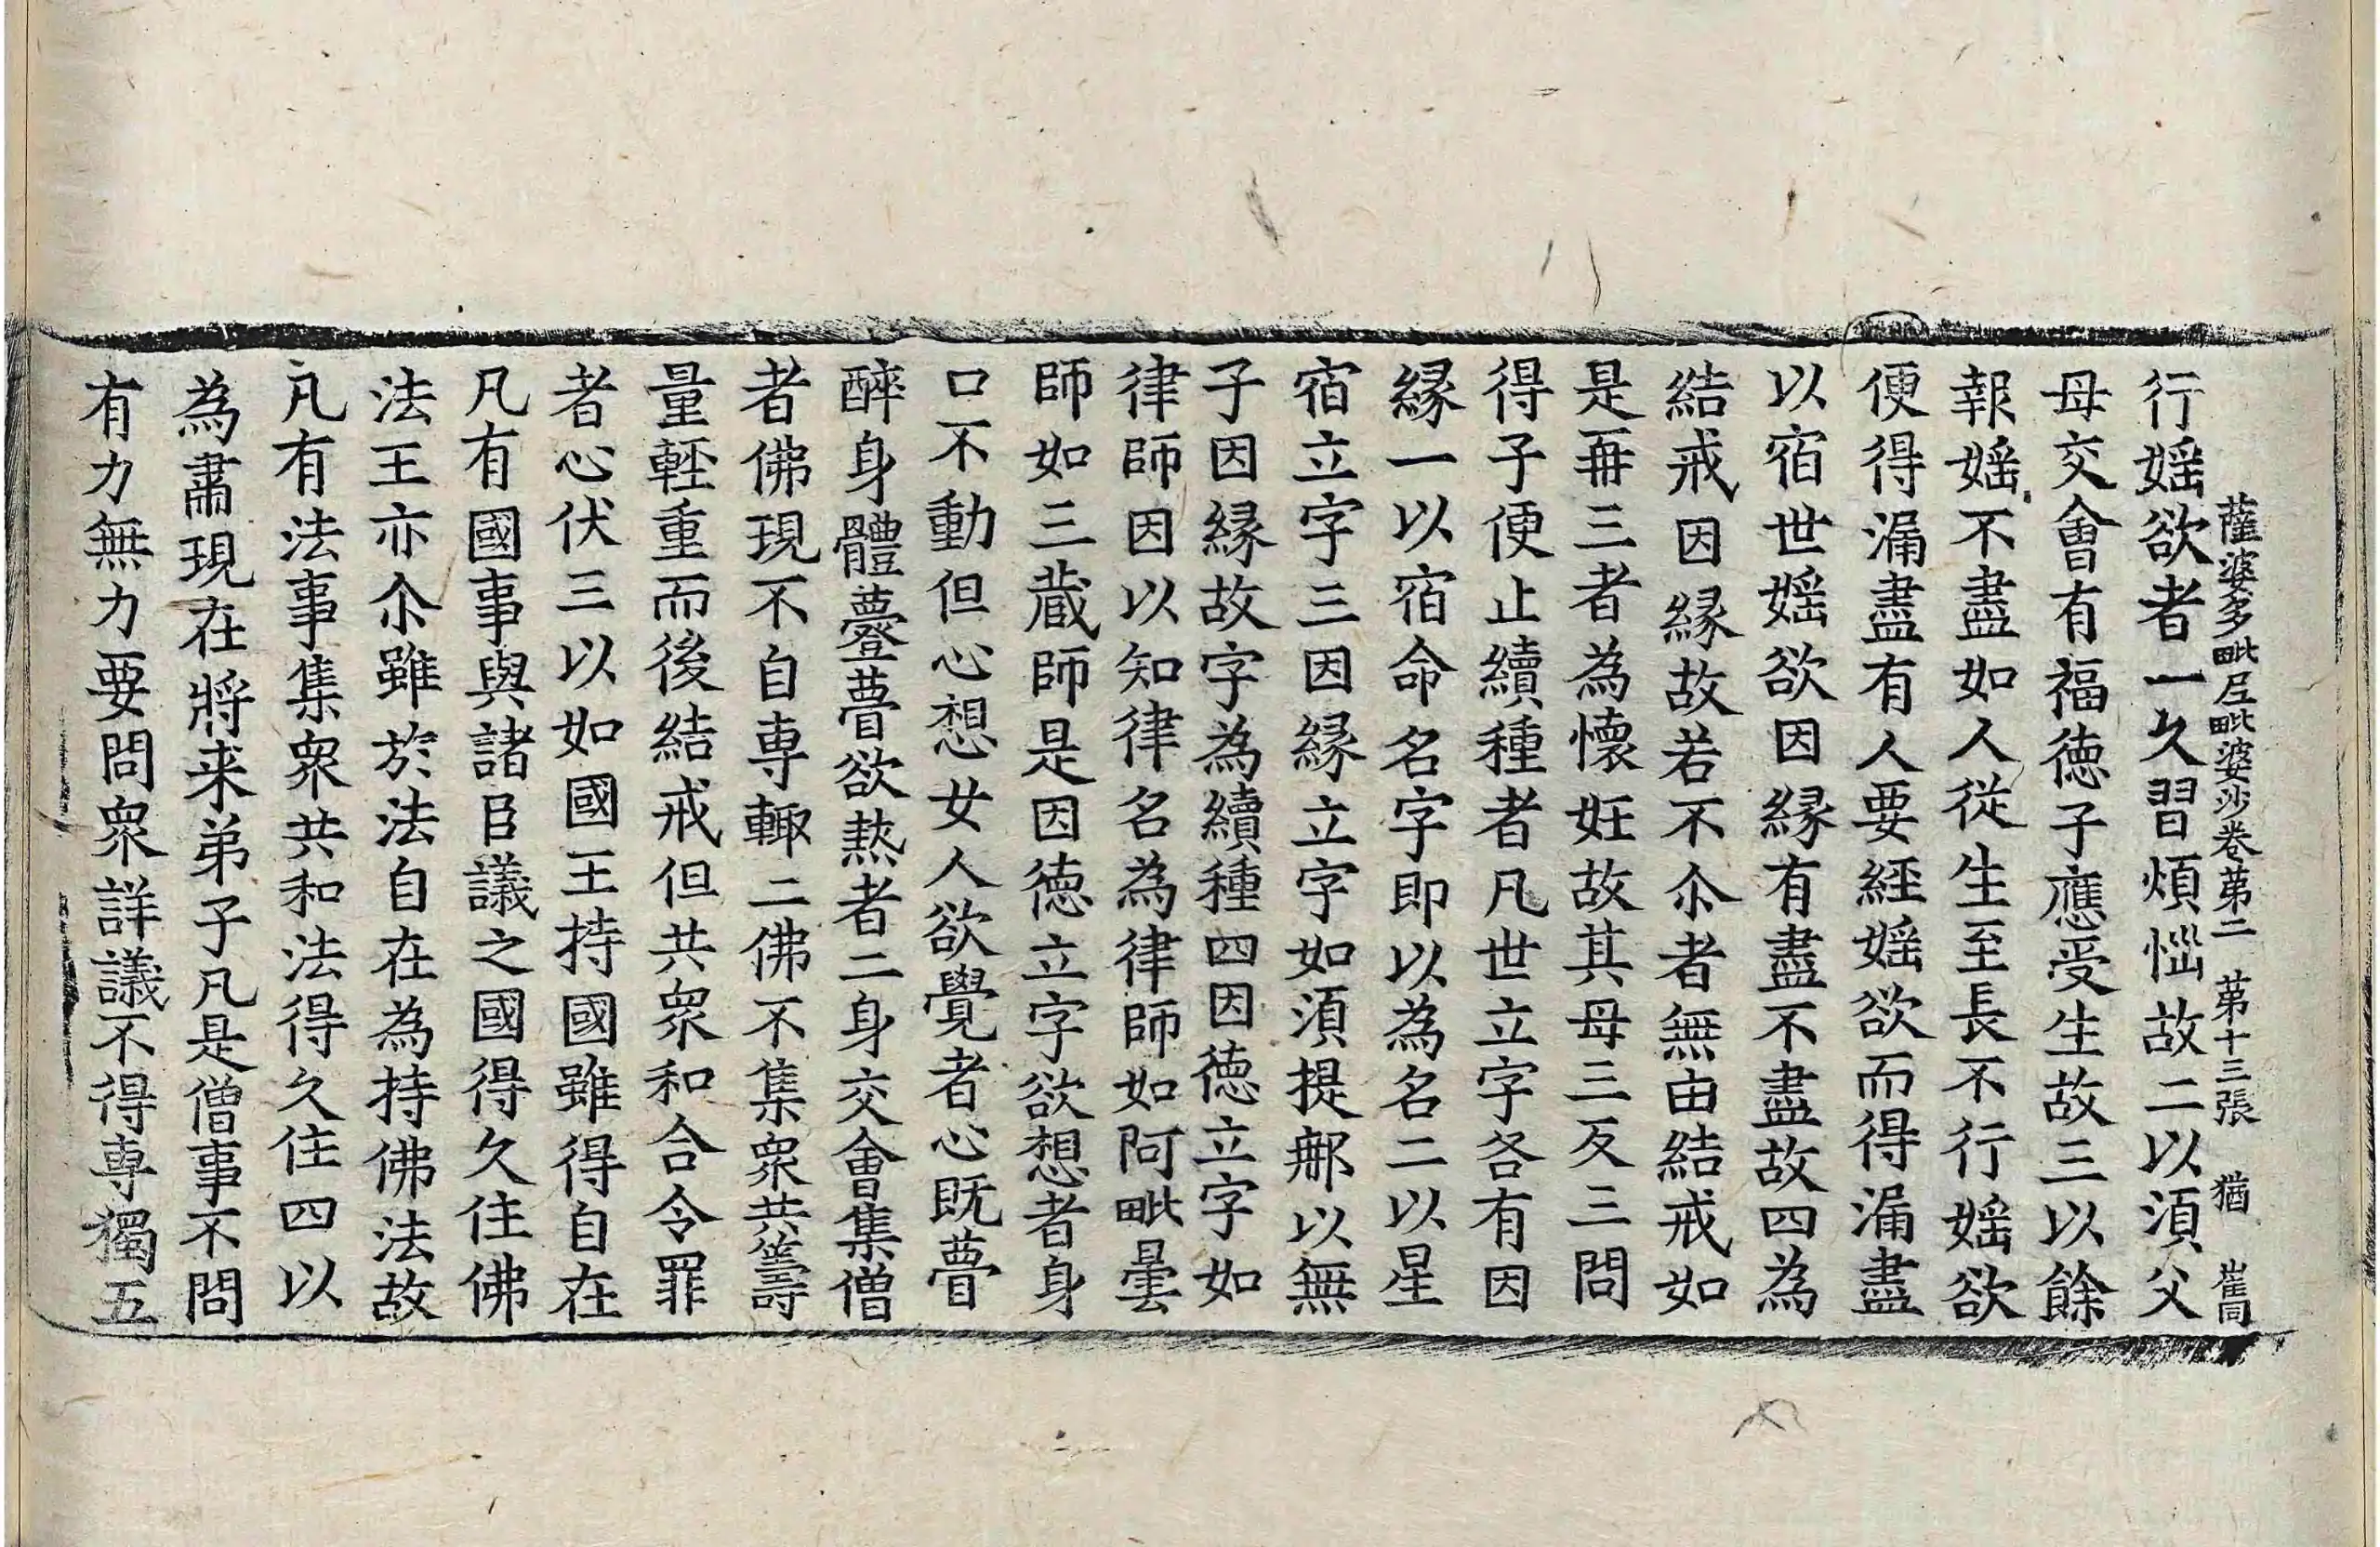 薩婆多毗尼毗婆沙卷苐二　苐十三張　猶　崔同
行婬欲者一久習煩惱故二以湏父
母交會有福徳子應受生故三以餘
報婬不盡如人從生至長不行婬欲
便得漏盡有人要經婬欲而得漏盡
以宿世婬欲因縁有盡不盡故四為
結戒因縁故若不尒者無由結戒如
是再三者為懷妊故其母三反三問
得子便止續種者凡世立字各有因
縁一以宿命名字即以為名二以星
宿立字三因縁立字如湏提郍以無
子因縁故字為續種四因徳立字如
律師因以知律名為律師如阿毗曇
師如三蔵師是因徳立字欲想者身
口不動但心想女人欲覺者心既瞢
醉身體㽅瞢欲熱者二身交會集僧
者佛現不自専輙二佛不集衆共籌
量輕重而後結戒但共衆和合令罪
者心伏三以如國王持國雖得自在
凡有國事與諸臣議之國得久住佛
法王亦尒雖於法自在為持佛法故
凡有法事集衆共和法得久住四以
為肅現在將来弟子凡是僧事不問
有力無力要問衆詳議不得専獨五